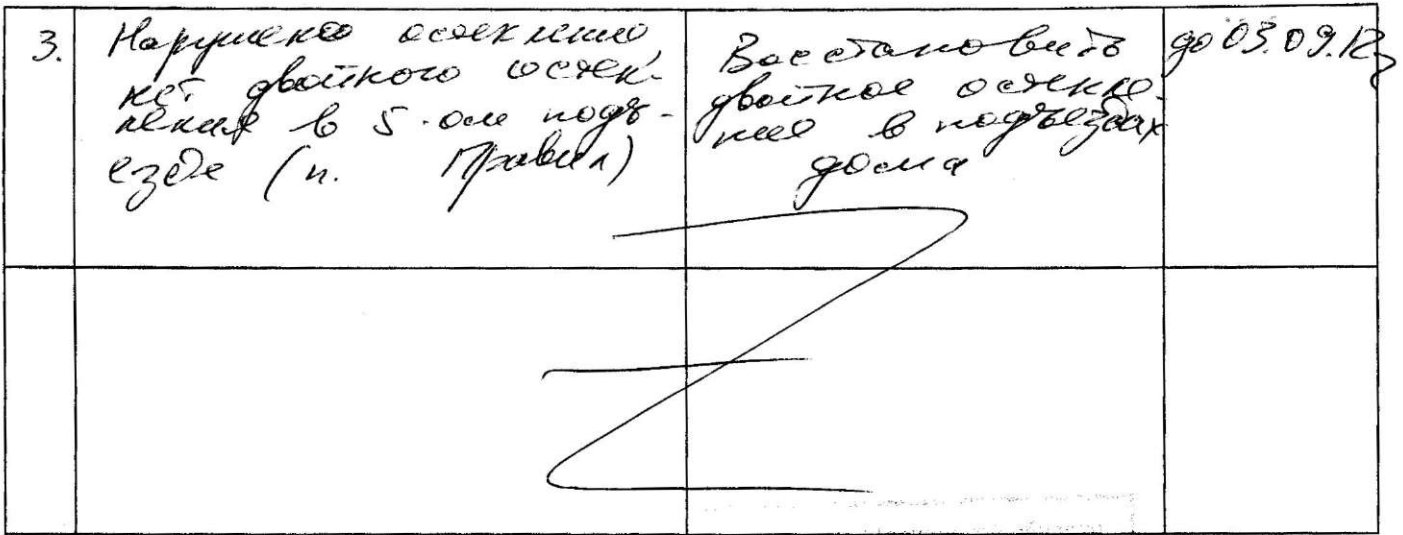 3.
Нарушено остекление,
нет двойного остек-
ления в 5-ом подъ-
езде (п. Правил)
Восстановить
двойное остекле-
ние в подъездах
дома
до 03.09.12г